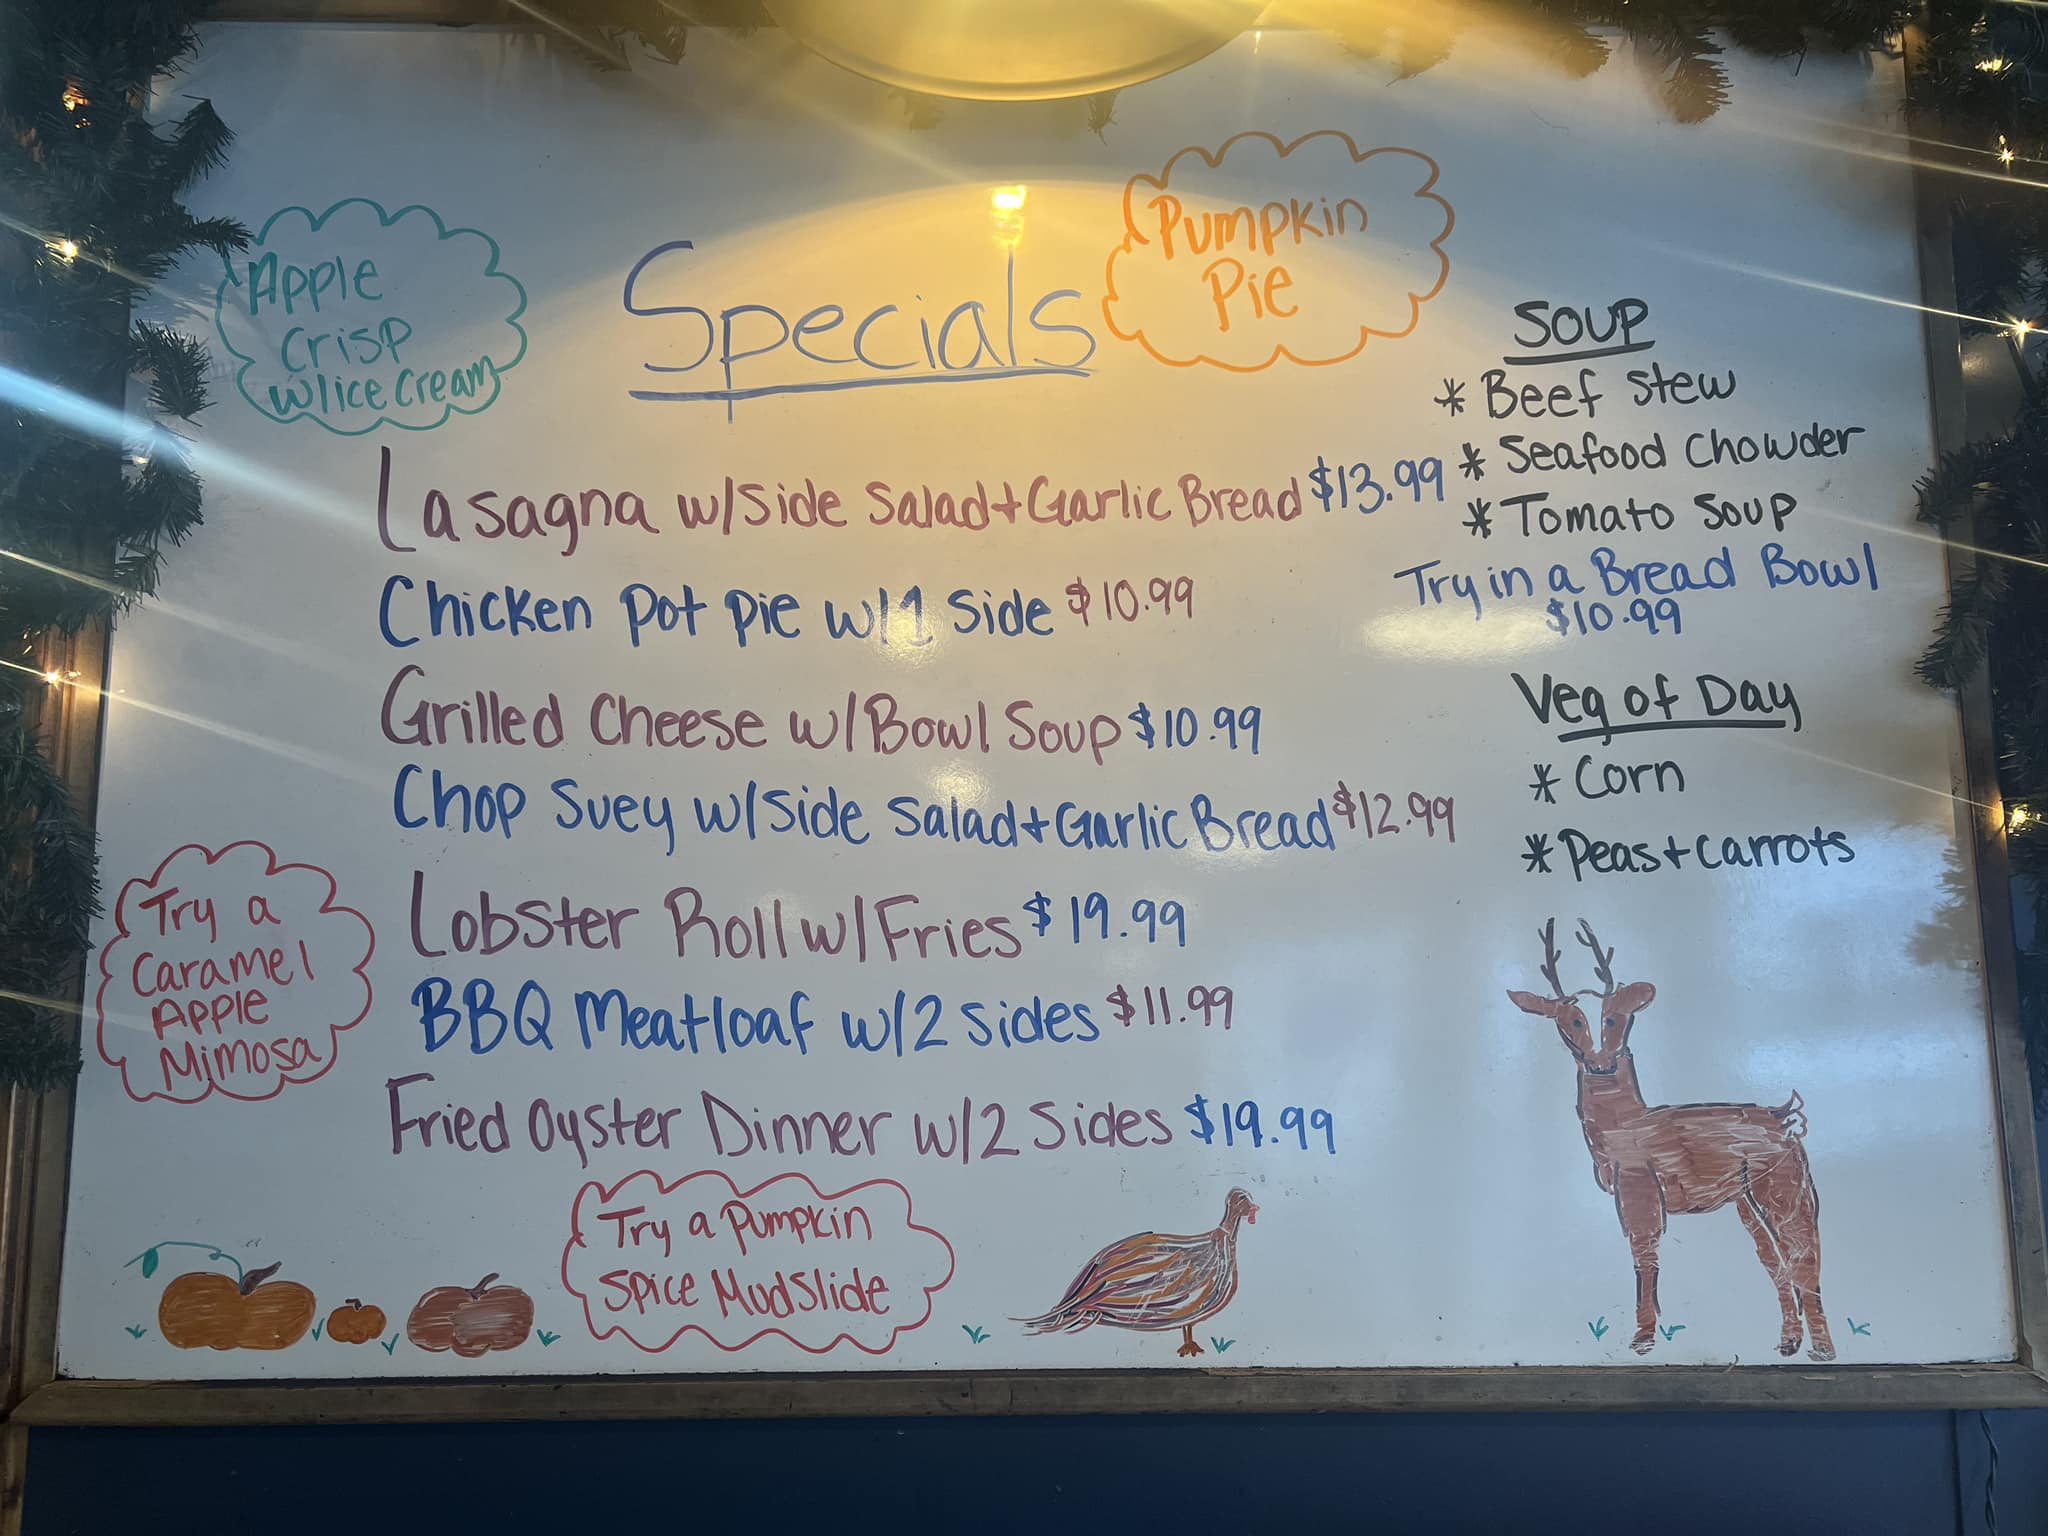 Apple
Crisp
w/ice Cream
Specials
Pumpkin
Pie
Lasagna w/Side Salad + Garlic Bread $13.99
Chicken Pot Pie w/1 Side $10.99
Grilled Cheese w/Bowl Soup $10.99
Chop Suey w/Side Salad + Garlic Bread $12.99
Lobster Roll w/Fries $19.99
BBQ Meatloaf w/2 Sides $11.99
Fried Oyster Dinner w/2 Sides $19.99
Soup
* Beef Stew
* Seafood Chowder
* Tomato Soup
Try in a Bread Bowl
$10.99
Veg of Day
* Corn
* Peas + Carrots
Try a
Caramel
Apple
Mimosa
Try a Pumpkin
Spice Mudslide